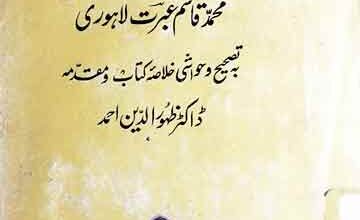 محمّد قاسم عبرت لاہوری
بہ تصحیح و حواشی خلاصۂ کتاب و مقدمہ
ڈاکٹر ظہور الدّین احمد